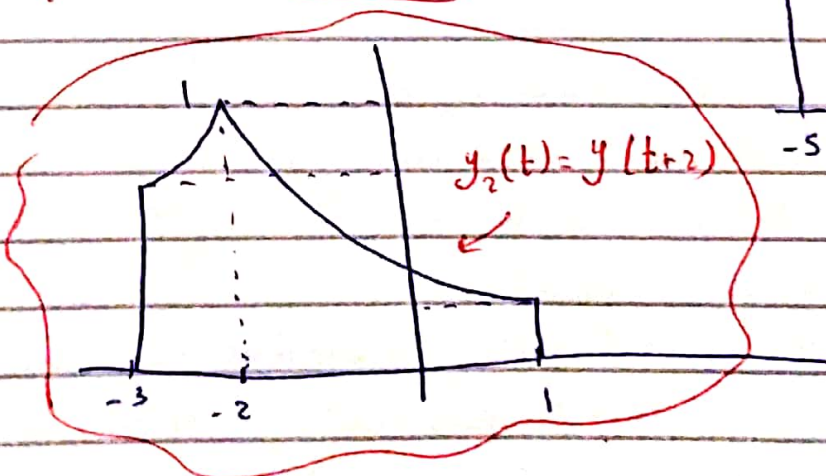 1
y₂(t) = y(t+2)
-5
-3
-2
1